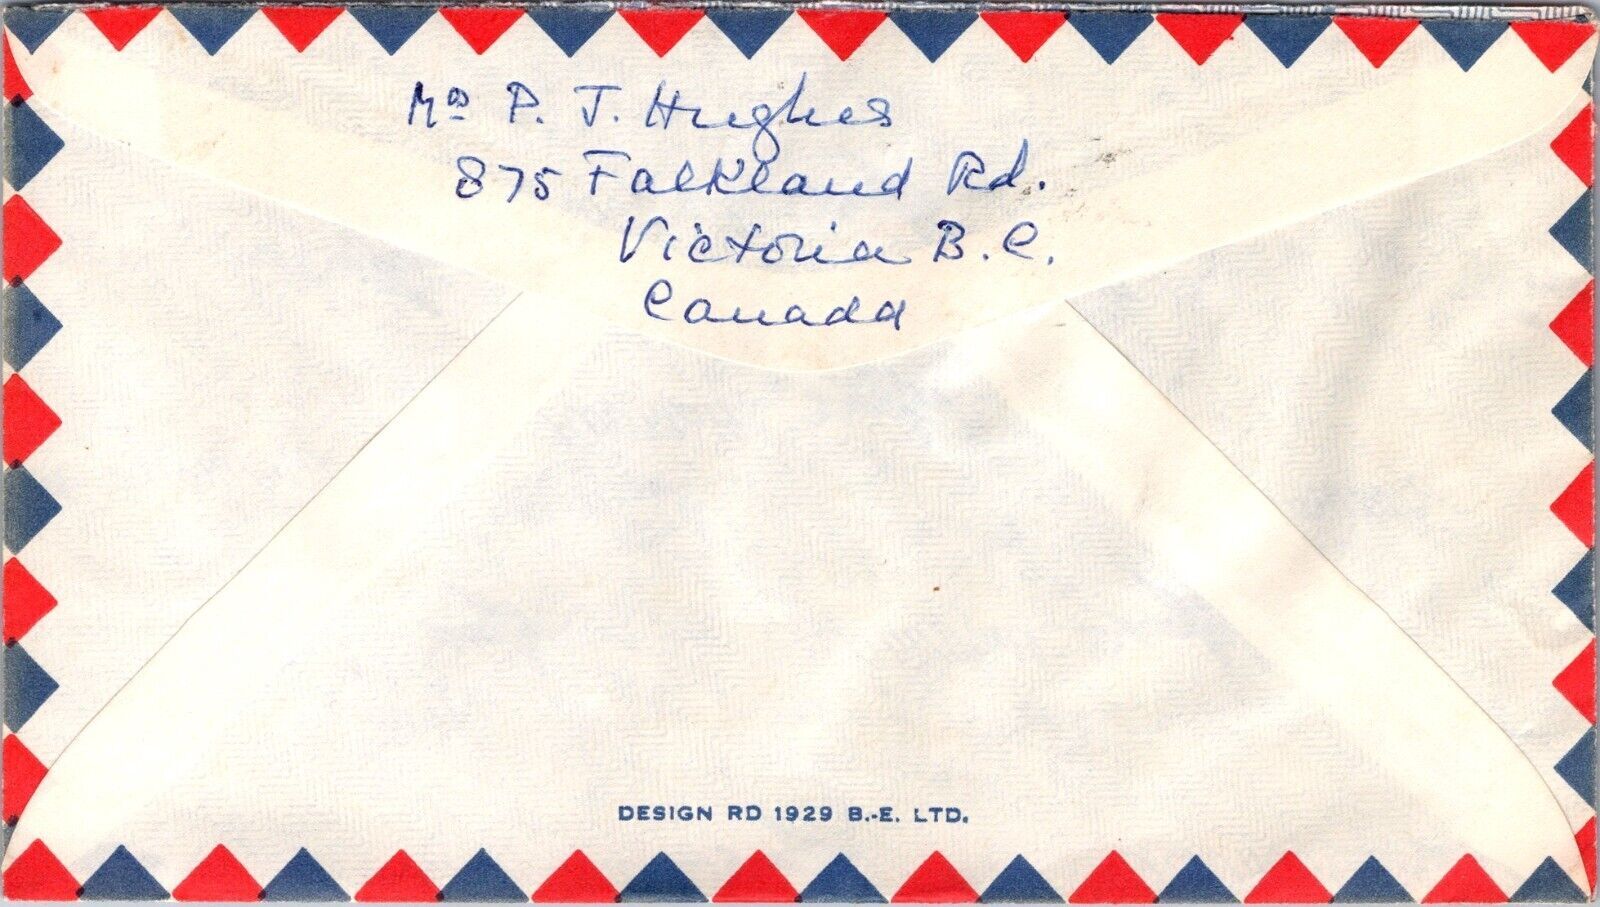 Mrs P. J. Hughes
875 Falkland Rd.
Victoria B.C.
Canada
DESIGN RD 1929 B.-E. LTD.